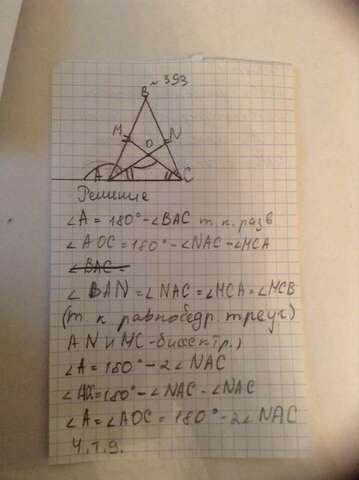 № 393
B
M
N
O
A
C
Решение
∠A = 180° - ∠BAC т.к. разв
∠AOC = 180° - ∠NAC - ∠MCA
∠BAC =
∠BAN = ∠NAC = ∠MCA = ∠MCB
(т к равнобедр. треуг)
AN и MC - биссектр.)
∠A = 180° - 2∠NAC
∠AOC = 180° - ∠NAC - ∠NAC
∠A = ∠AOC = 180° - 2∠NAC
ч.т.д.